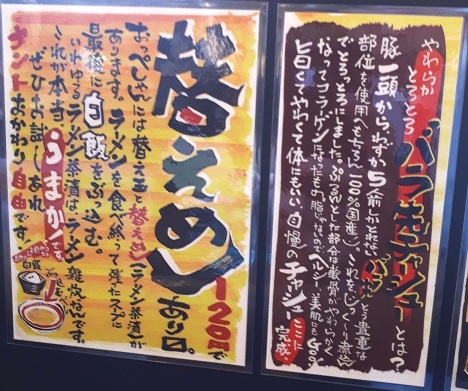 やわらか
とろとろ
バラナンコツチャシューとは?
豚一頭からわずか5人前しかとれないという貴重な
部位を使用(もちろん100%国産)。これをじっくり煮込ん
でとろっとろにしました。ぷるんとした部分は軟骨がやわらかく
なってコラーゲンになったもの。脂じゃないのでヘルシー。美肌にもGood
旨くてやわくて体にもいい、自慢のチャーシューここに完成。
替えめし120円であり〼。
おっぺしゃんには替え玉と替えめし(ラーメン茶漬)が
あります。ラーメンを食べ終って残ったスープに
最後に白飯をぶっ込む。
いわゆるラーメン茶漬はラーメン雑炊です。
これが本当うまかです。
ぜひお試しあれ
ナントおかわり自由です!
白飯